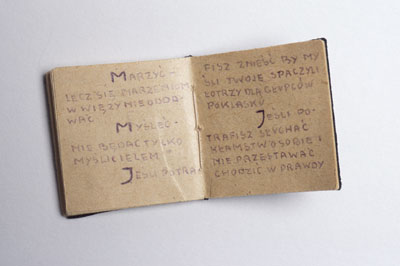 MARZYĆ –
LECZ SIĘ MARZENIOM
W WIĘZY NIE ODDA-
WAĆ
MYŚLEĆ –
NIE BĘDĄC TYLKO
MYŚLICIELEM
JEŚLI POTRA-
FISZ ZNIEŚĆ BY MY
ŚLI TWOJE SPACZYLI
ŁOTRZY DLA GŁUPCÓW
POKLASKU
JEŚLI PO-
TRAFISZ SŁUCHAĆ
KŁAMSTW O SOBIE I
NIE PRZESTAWAĆ
CHODZIĆ W PRAWDY